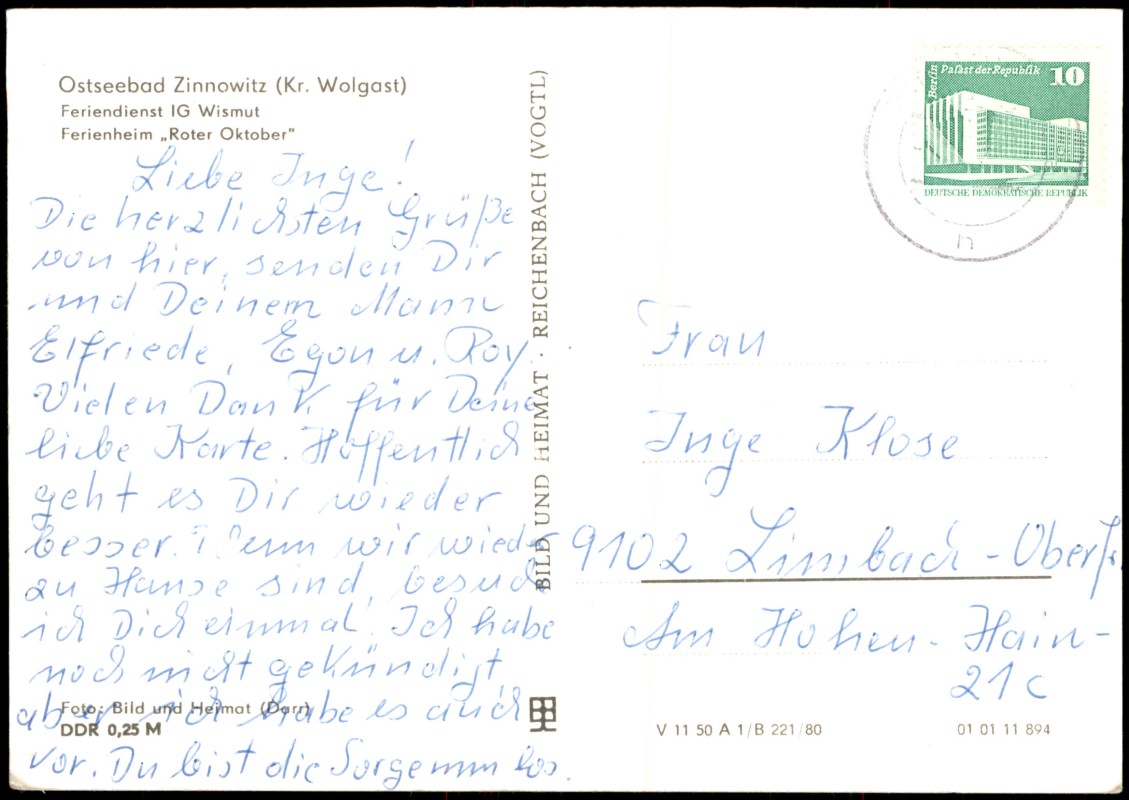 Ostseebad Zinnowitz (Kr. Wolgast)
Feriendienst IG Wismut
Ferienheim „Roter Oktober"
Liebe Inge!
Die herzlichsten Grüße
von hier, senden Dir
und Deinem Mann
Elfriede, Egon u. Roy.
Vielen Dank für Deine
liebe Karte. Hoffentlich
geht es Dir wieder
besser. Wenn wir wieder
zu Hause sind, besuch
ich Dich einmal. Ich habe
noch nicht gekündigt
aber ich habe es auch
vor. Du bist die Sorgen nun los.
Foto: Bild und Heimat (Darr)
DDR 0,25 M
BILD UND HEIMAT · REICHENBACH (VOGTL)
Berlin
Palast der Republik
10
DEUTSCHE DEMOKRATISCHE REPUBLIK
n
Frau
Inge Klose
9102 Limbach-Oberfr.
Am Hohen-Hain-
21c
V 11 50 A 1/B 221/80
01 01 11 894